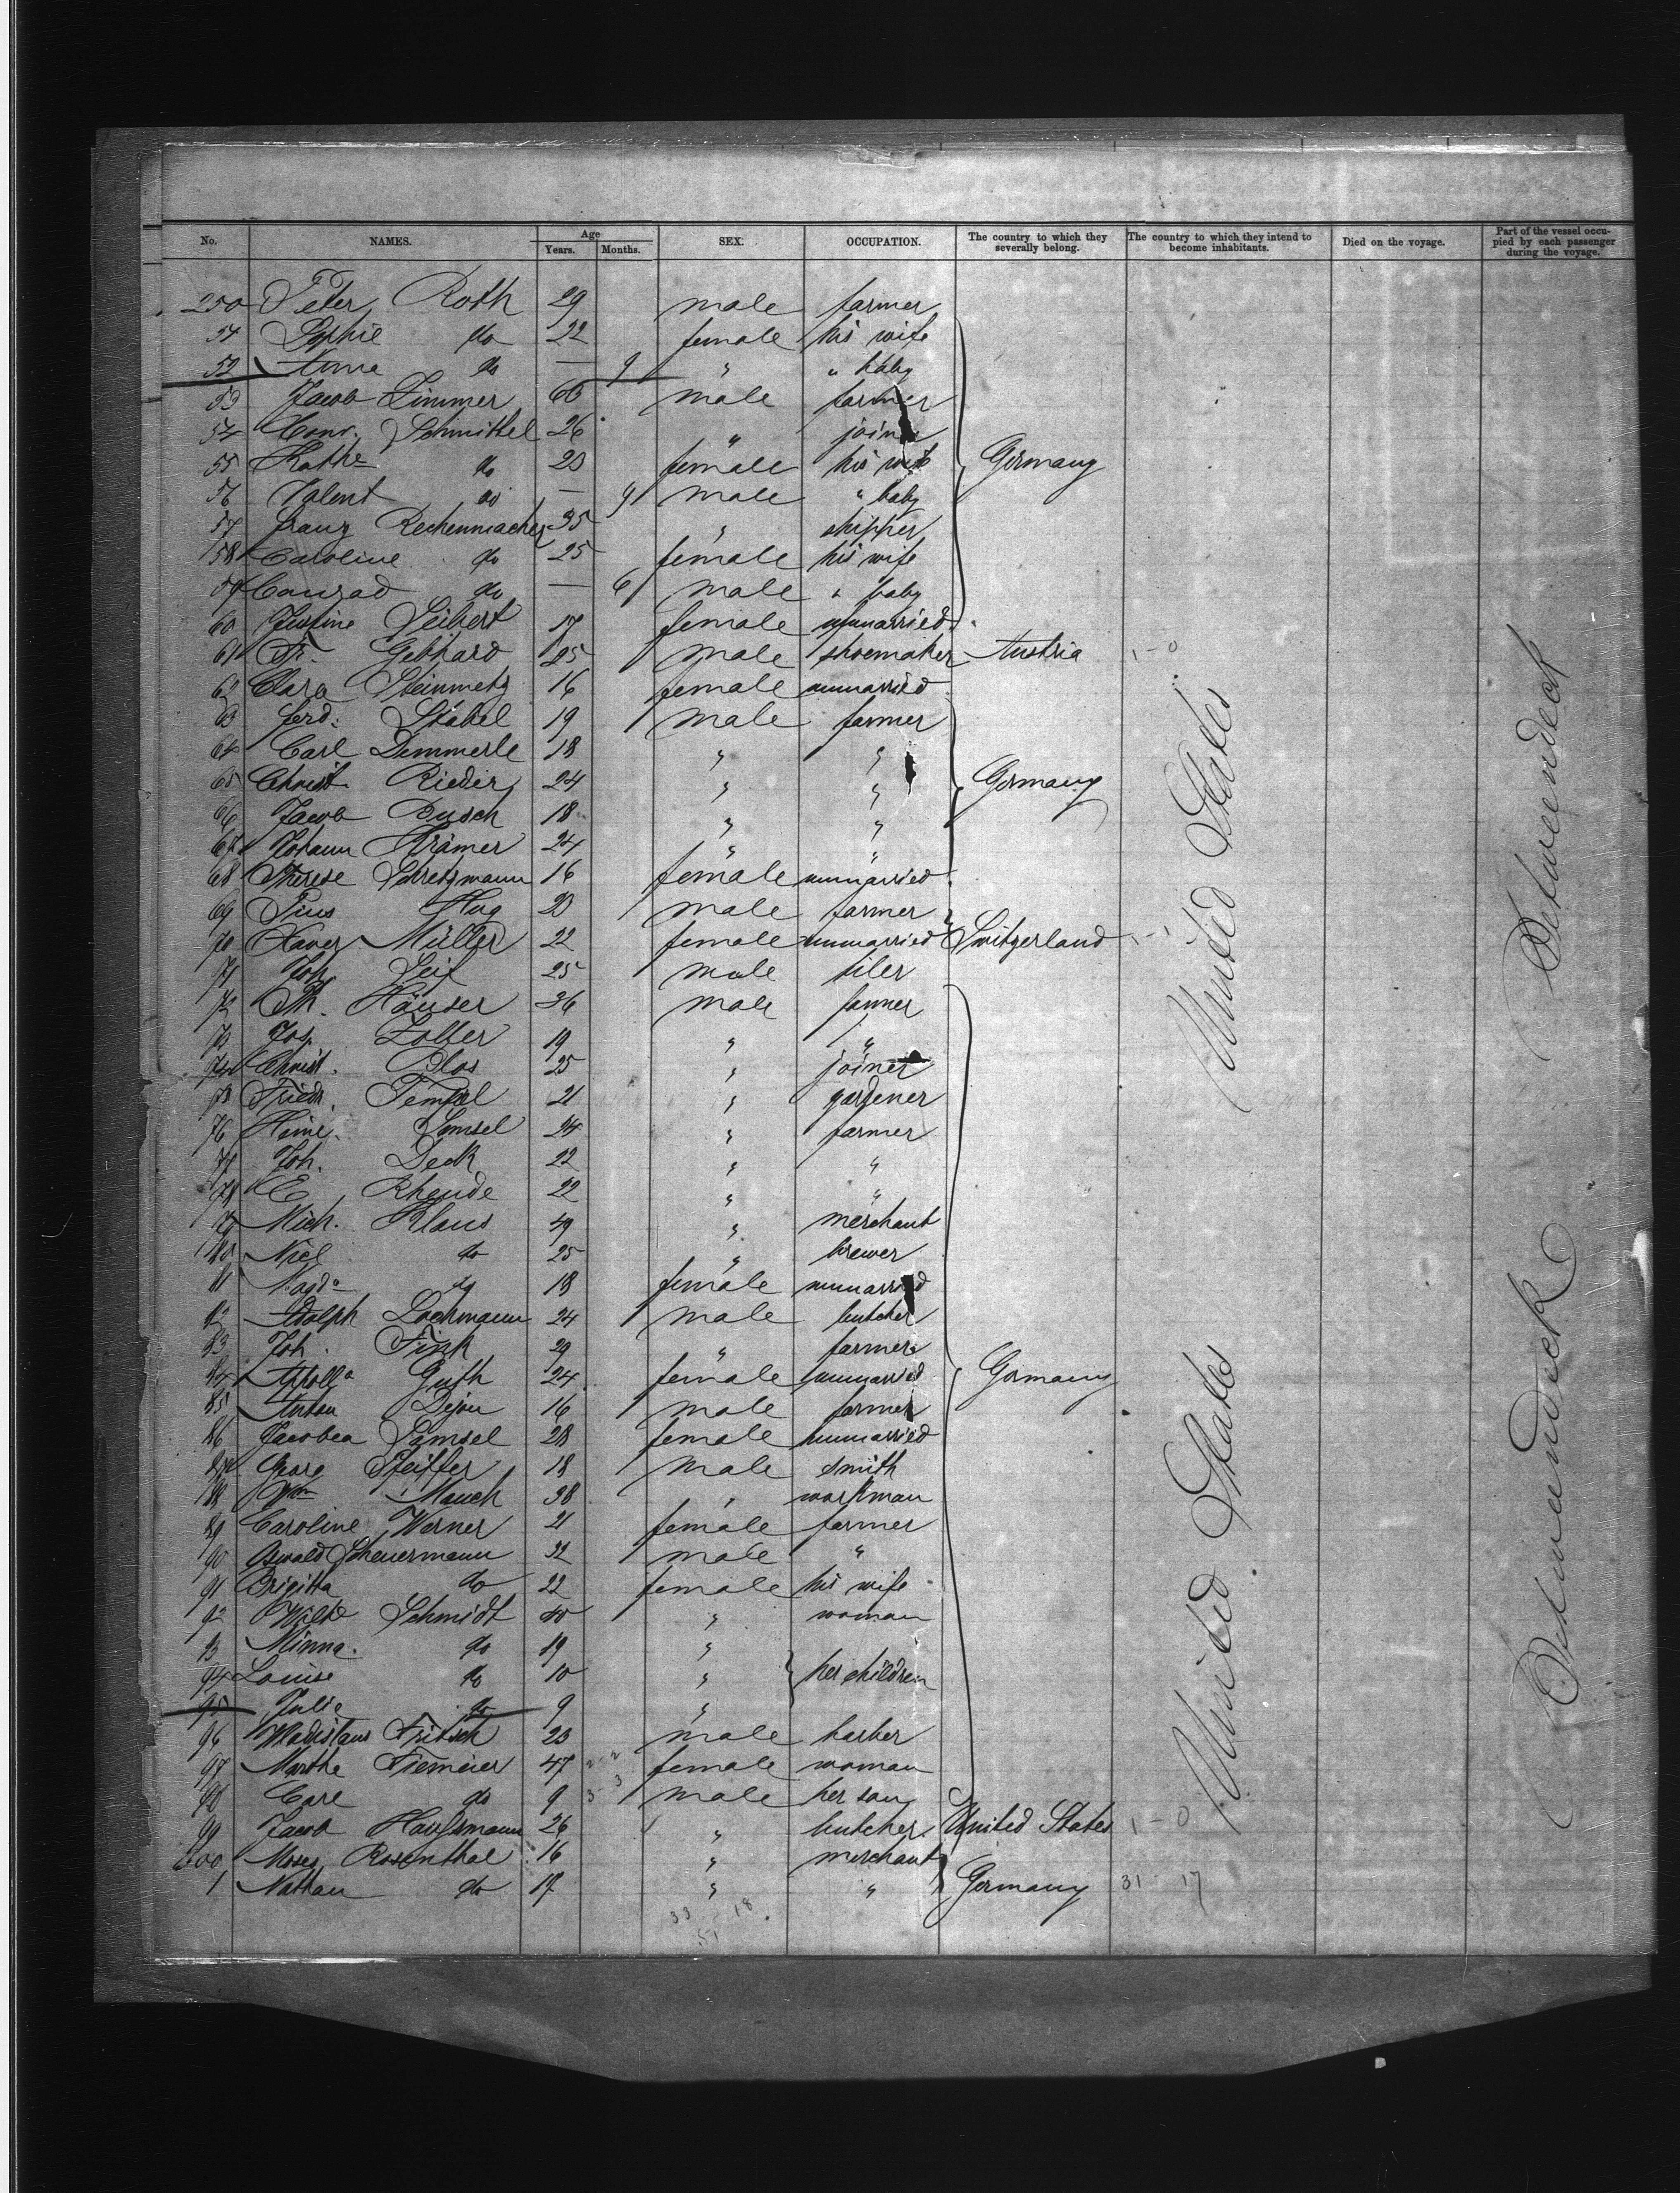 No. NAMES. Age Years. Months. SEX. OCCUPATION. The country to which they severally belong. The country to which they intend to become inhabitants. Died on the voyage. Part of the vessel occupied by each passenger during the voyage.
250 Peter Roth 29 male farmer
51 Sophie do 22 female his wife
52 Anna do — 9 " " baby
53 Jacob Zimmer 60 male farmer
54 Conr. Schmittel 26 " joiner
55 Kathe do 23 female his wife Germany
56 Valent do — 9 male " baby
57 Franz Rechenmacher 35 " skipper
58 Caroline do 25 female his wife
59 Conrad do — 6 male " baby
60 Justine Seibert 17 female unmarried
61 Fr. Gebhard 25 male shoemaker Austria 1-0
62 Clara Steinmetz 16 female unmarried
63 Ferd: Stabel 19 male farmer
64 Carl Demmerle 18 " "
65 Christ. Rieder 24 " " Germany
66 Jacob Busch 18 " "
67 Johann Krämer 24 " "
68 Therese Schretzmann 16 female unmarried
69 Pius Hug 23 male farmer
70 Xaver Müller 22 female unmarried Switzerland 1-1
71 Joh. Seif 25 male tiler
72 Th. Häuser 36 male farmer
73 Jos. Zolber 19 " "
74 Christ. Blos 25 " joiner
75 Friedr. Tempel 21 " gardener
76 Heinr. Samsel 24 " farmer
77 Joh. Deck 22 " "
78 E. Rheude 22 " "
79 Mich. Klaus 49 " merchant
80 Nicl do 25 " brewer
81 Magd. do 18 female unmarried
82 Adolph Lochmann 24 male butcher
83 Joh. Fink 29 " farmer
84 Apolla Guth 24 female unmarried Germany
85 Anton Dejon 16 male farmer
86 Jacobea Samsel 28 female unmarried
87 Georg Pfeiffer 18 male smith
88 Wm Mauch 38 " workman
89 Caroline Werner 21 female farmer
90 Oswald Scheuermann 32 male "
91 Brigitta do 22 female his wife
92 Wilhe Schmidt 40 " woman
93 Minna do 19 "
94 Louise do 10 " her children
95 Julie do 9 "
96 Wladislaus Fritsch 23 male barber
97 Marthe Tiemeier 47 2-2 female woman
98 Carl do 9 3-3 male her son
99 Jacob Haussmann 26 " butcher United States 1-0
300 Moses Rosenthal 16 " merchant
1 Nathan do 17 " " Germany 31-17
33 18
51
United States
United States
Betweendeck
Betweendeck